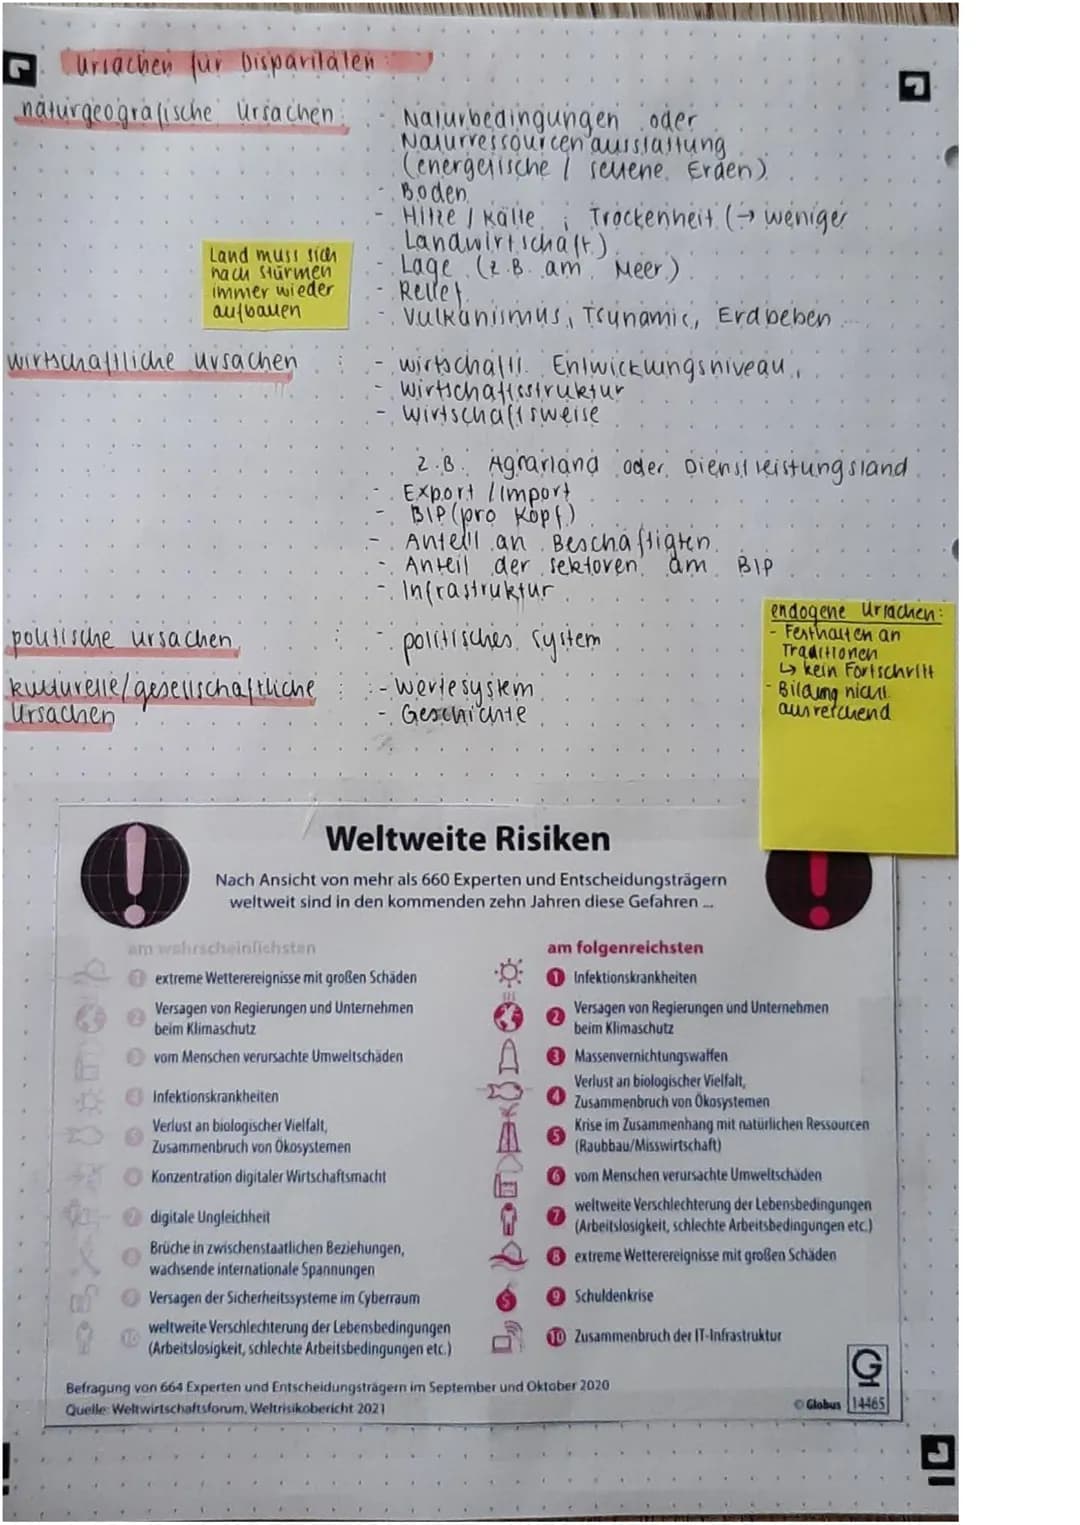 Ursachen für Disparitäten
naturgeografische Ursachen:
- Naturbedingungen oder
Naturressourcenausstattung
(energetische / seltene Erden)
- Boden
- Hitze / Kälte ; Trockenheit (→ weniger
Landwirtschaft)
- Lage (z.B. am Meer)
- Relief
- Vulkanismus, Tsunamic, Erdbeben ...
Land muss sich
nach Stürmen
immer wieder
aufbauen
wirtschaftliche Ursachen :
- wirtschaftl. Entwicklungsniveau,
- Wirtschaftsstruktur
- Wirtschaftsweise
z.B. Agrarland oder Dienstleistungsland
- Export / Import
- BIP (pro Kopf)
- Anteil an Beschäftigten
- Anteil der Sektoren am BIP
- Infrastruktur
politische Ursachen :
- politisches System
kulturelle/gesellschaftliche
Ursachen
: - Wertesystem
- Geschichte
endogene Ursachen:
- Festhalten an
Traditionen
↳ kein Fortschritt
- Bildung nicht
ausreichend
Weltweite Risiken
Nach Ansicht von mehr als 660 Experten und Entscheidungsträgern
weltweit sind in den kommenden zehn Jahren diese Gefahren ...
am wahrscheinlichsten
1 extreme Wetterereignisse mit großen Schäden
2 Versagen von Regierungen und Unternehmen
beim Klimaschutz
3 vom Menschen verursachte Umweltschäden
4 Infektionskrankheiten
5 Verlust an biologischer Vielfalt,
Zusammenbruch von Ökosystemen
6 Konzentration digitaler Wirtschaftsmacht
7 digitale Ungleichheit
8 Brüche in zwischenstaatlichen Beziehungen,
wachsende internationale Spannungen
9 Versagen der Sicherheitssysteme im Cyberraum
10 weltweite Verschlechterung der Lebensbedingungen
(Arbeitslosigkeit, schlechte Arbeitsbedingungen etc.)
am folgenreichsten
1 Infektionskrankheiten
2 Versagen von Regierungen und Unternehmen
beim Klimaschutz
3 Massenvernichtungswaffen
4 Verlust an biologischer Vielfalt,
Zusammenbruch von Ökosystemen
5 Krise im Zusammenhang mit natürlichen Ressourcen
(Raubbau/Misswirtschaft)
6 vom Menschen verursachte Umweltschäden
7 weltweite Verschlechterung der Lebensbedingungen
(Arbeitslosigkeit, schlechte Arbeitsbedingungen etc.)
8 extreme Wetterereignisse mit großen Schäden
9 Schuldenkrise
10 Zusammenbruch der IT-Infrastruktur
Befragung von 664 Experten und Entscheidungsträgern im September und Oktober 2020
Quelle: Weltwirtschaftsforum, Weltrisikobericht 2021
© Globus 14465
G